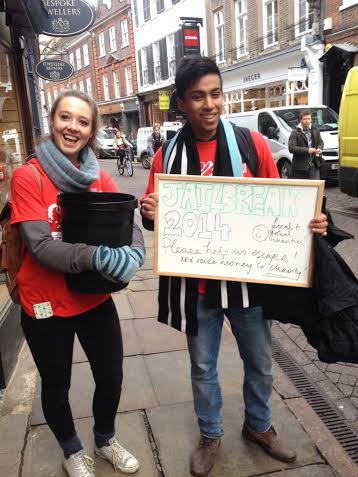 BESPOKE
JEWELLERS
JEWELLERY
REPAIRS
JAEGER
JAILBREAK
2014
Local +
Mutual
Please help us escape!
and raise money for charity!